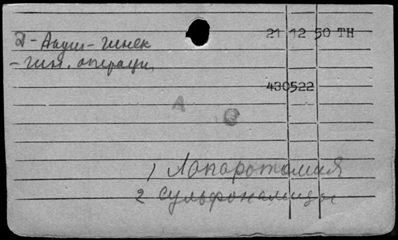 2 - Акуш - гинек
21 12 50 TH
- гин. операци
430522
A
Q
1 Лапаротомия
2 Сульфонамиды